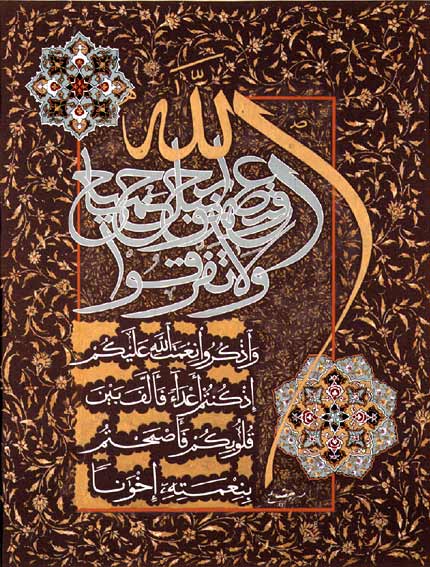 واعتصموا بحبل الله جميعا
ولا تفرقوا
وَاذْكُرُوا نِعْمَتَ اللَّهِ عَلَيْكُمْ
إِذْ كُنْتُمْ أَعْدَاءً فَأَلَّفَ بَيْنَ
قُلُوبِكُمْ فَأَصْبَحْتُمْ
بِنِعْمَتِهِ إِخْوَانًا